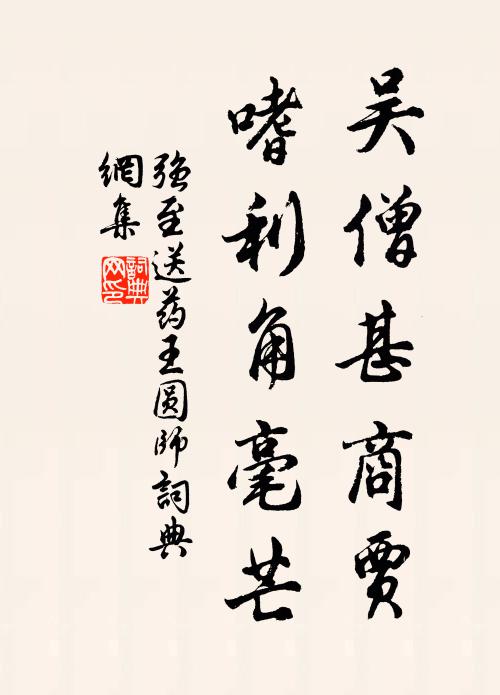 吴僧甚商贾
嗜利角毫芒
强至送药王圆师詞典
網集
詞典
网印